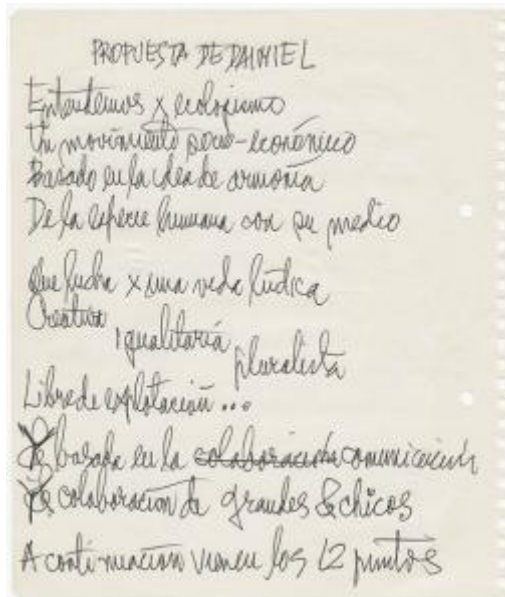 PROPUESTA DE DAIMIEL
Entendemos x ecologismo
Un movimiento socio-económico
Basado en la idea de armonía
De la especie humana con su medio
Que lucha x una vida lúdica
Creativa
igualitaria
pluralista
Libre de explotación...
& basada en la colaboración comunicación
& colaboración de grandes & chicos
A continuación vienen los 12 puntos